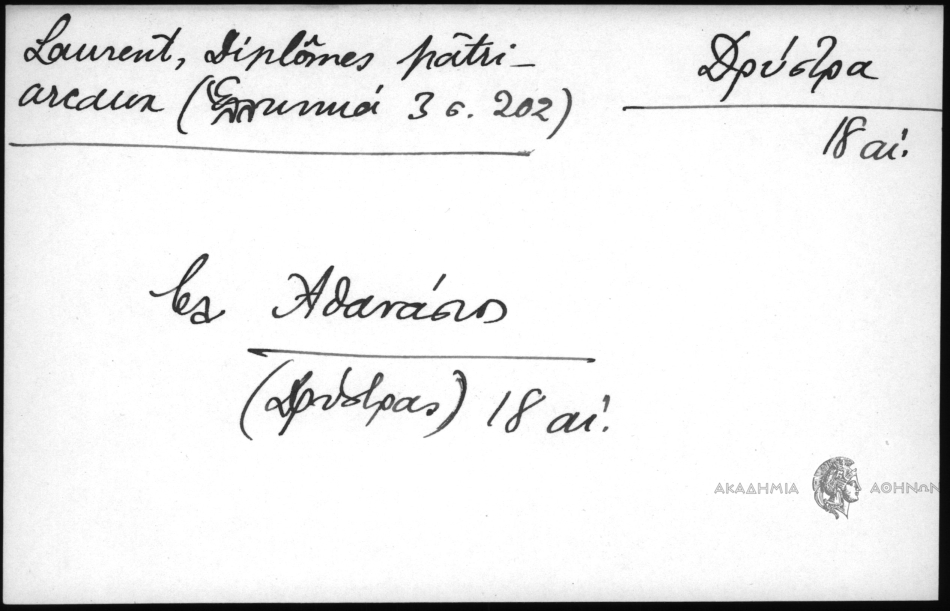 Laurent, Diplômes patri-
arcaux (Ελληνικά 3 σ. 202)
Δρύστρα
18 αἰ.
Ἀθανάσιος
(Δρύστρας) 18 αἰ.
ΑΚΑΔΗΜΙΑ ΑΘΗΝΩΝ